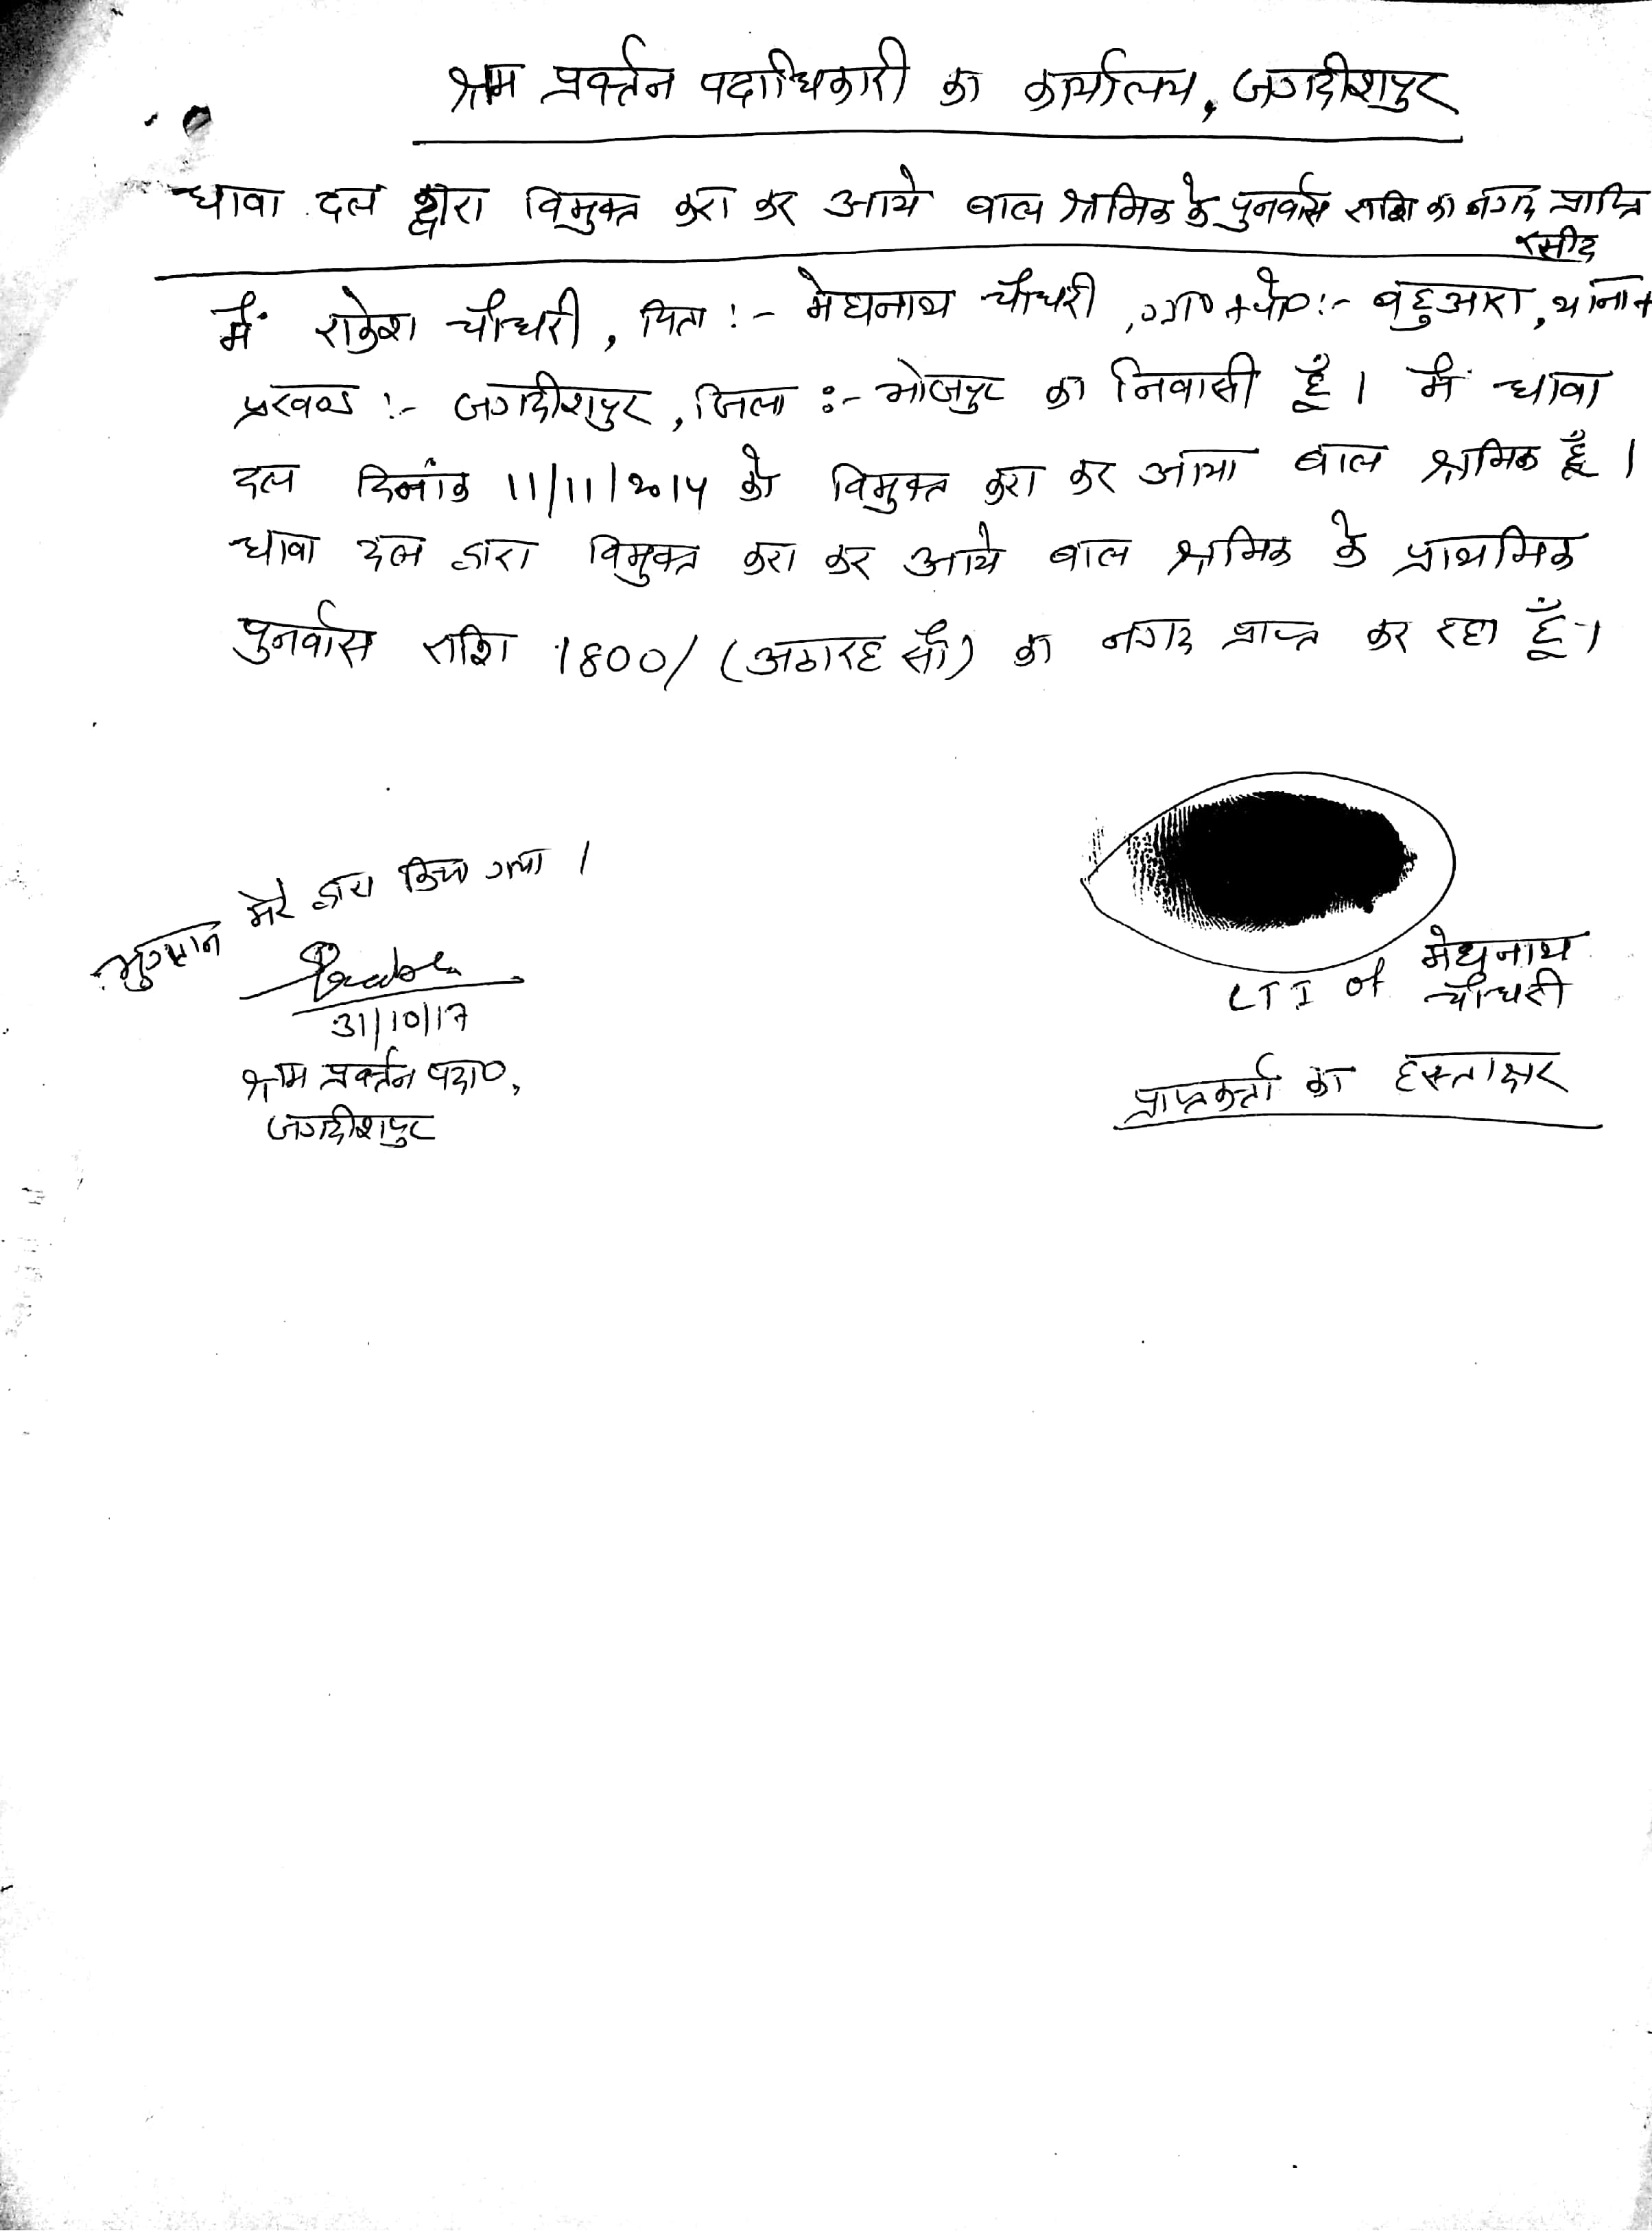 श्रम प्रवर्तन पदाधिकारी का कार्यालय, जगदीशपुर
धावा दल द्वारा विमुक्त करा कर आये बाल श्रमिक के पुनर्वास राशि का नगद प्राप्ति
रसीद
मैं राकेश चौधरी, पिता :- मेघनाथ चौधरी, ग्रा० + पो० :- बहुआरा, थाना +
प्रखण्ड :- जगदीशपुर, जिला :- भोजपुर का निवासी हूँ। मैं धावा
दल दिनांक 11/11/2014 को विमुक्त करा कर आया बाल श्रमिक हूँ।
धावा दल द्वारा विमुक्त करा कर आये बाल श्रमिक के प्राथमिक
पुनर्वास राशि 1800/ (अठारह सौ) का नगद प्राप्त कर रहा हूँ।
भुगतान मेरे द्वारा किया गया।
31/10/17
श्रम प्रवर्तन पदा०,
जगदीशपुर
LTI of मेघनाथ
चौधरी
प्राप्तकर्ता का हस्ताक्षर